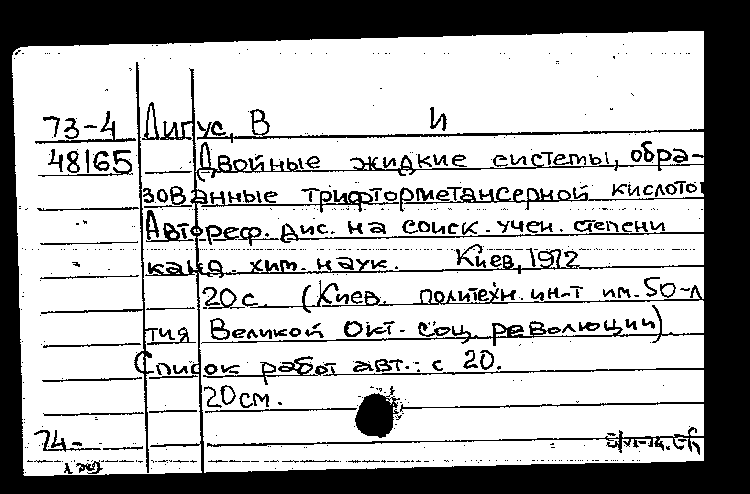 73-4 Лигус, В И
48165 Двойные жидкие системы, обра-
зованные трифторметансерной кислотой
Автореф. дис. на соиск. учен. степени
канд. хим. наук. Киев, 1972
20 с. (Киев. политехн. ин-т им. 50-л
тия Великой Окт. соц. революции)
Список работ авт.: с 20.
20 см.
74-